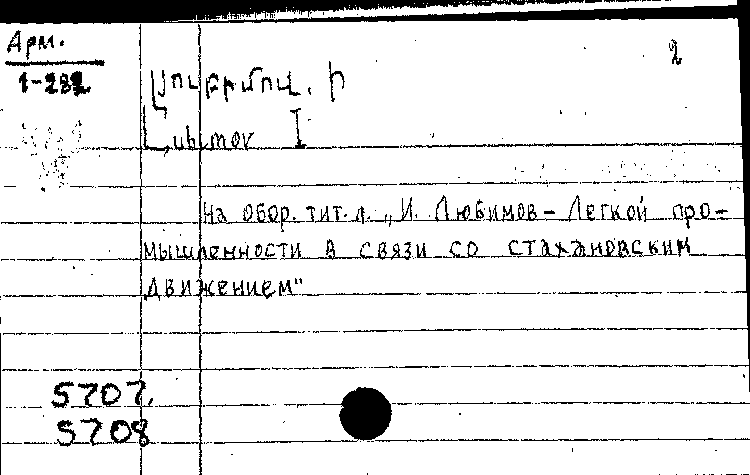 Арм.
2
1-282
Լյուբիմով. Ի
Lubimov I
На обор. тит. л. „И. Любимов – Легкой про-
мышленности в связи со стахановским
движением"
5707.
5708